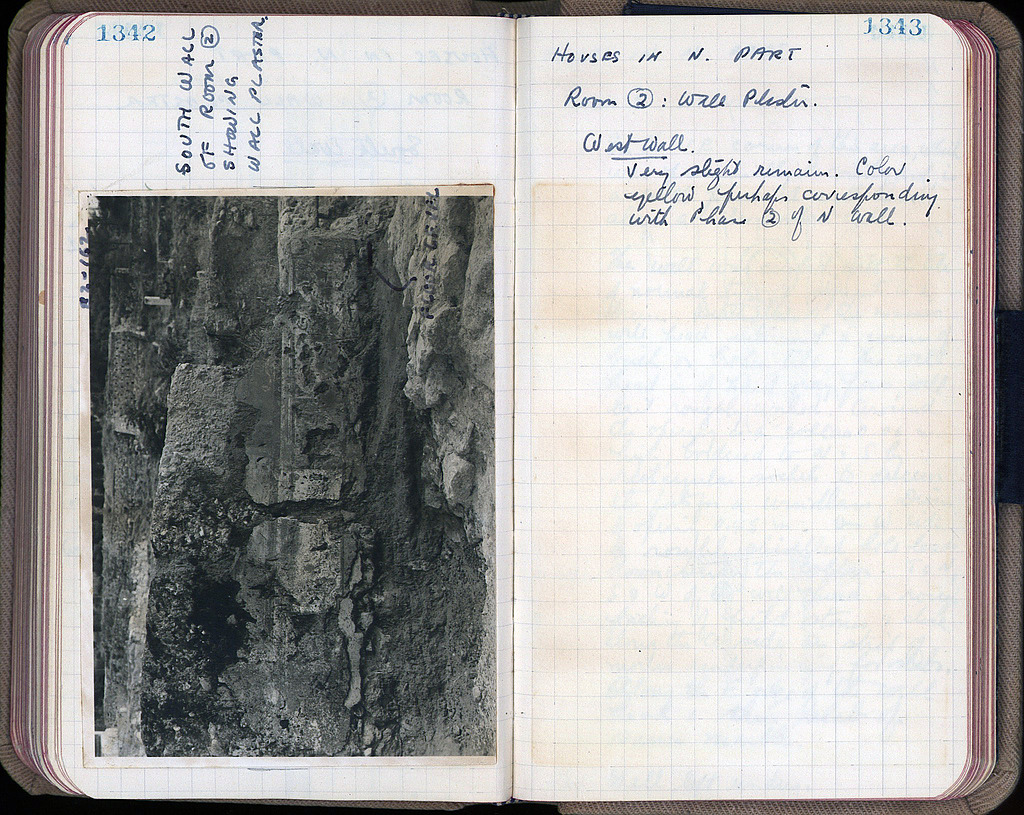 1342
SOUTH WALL
OF ROOM ②
SHOWING
WALL PLASTER
1343
HOUSES IN N. PART
Room ②: Wall Plaster.
West Wall.
Very slight remains. Color
yellow, perhaps corresponding
with Phase ② of N wall.